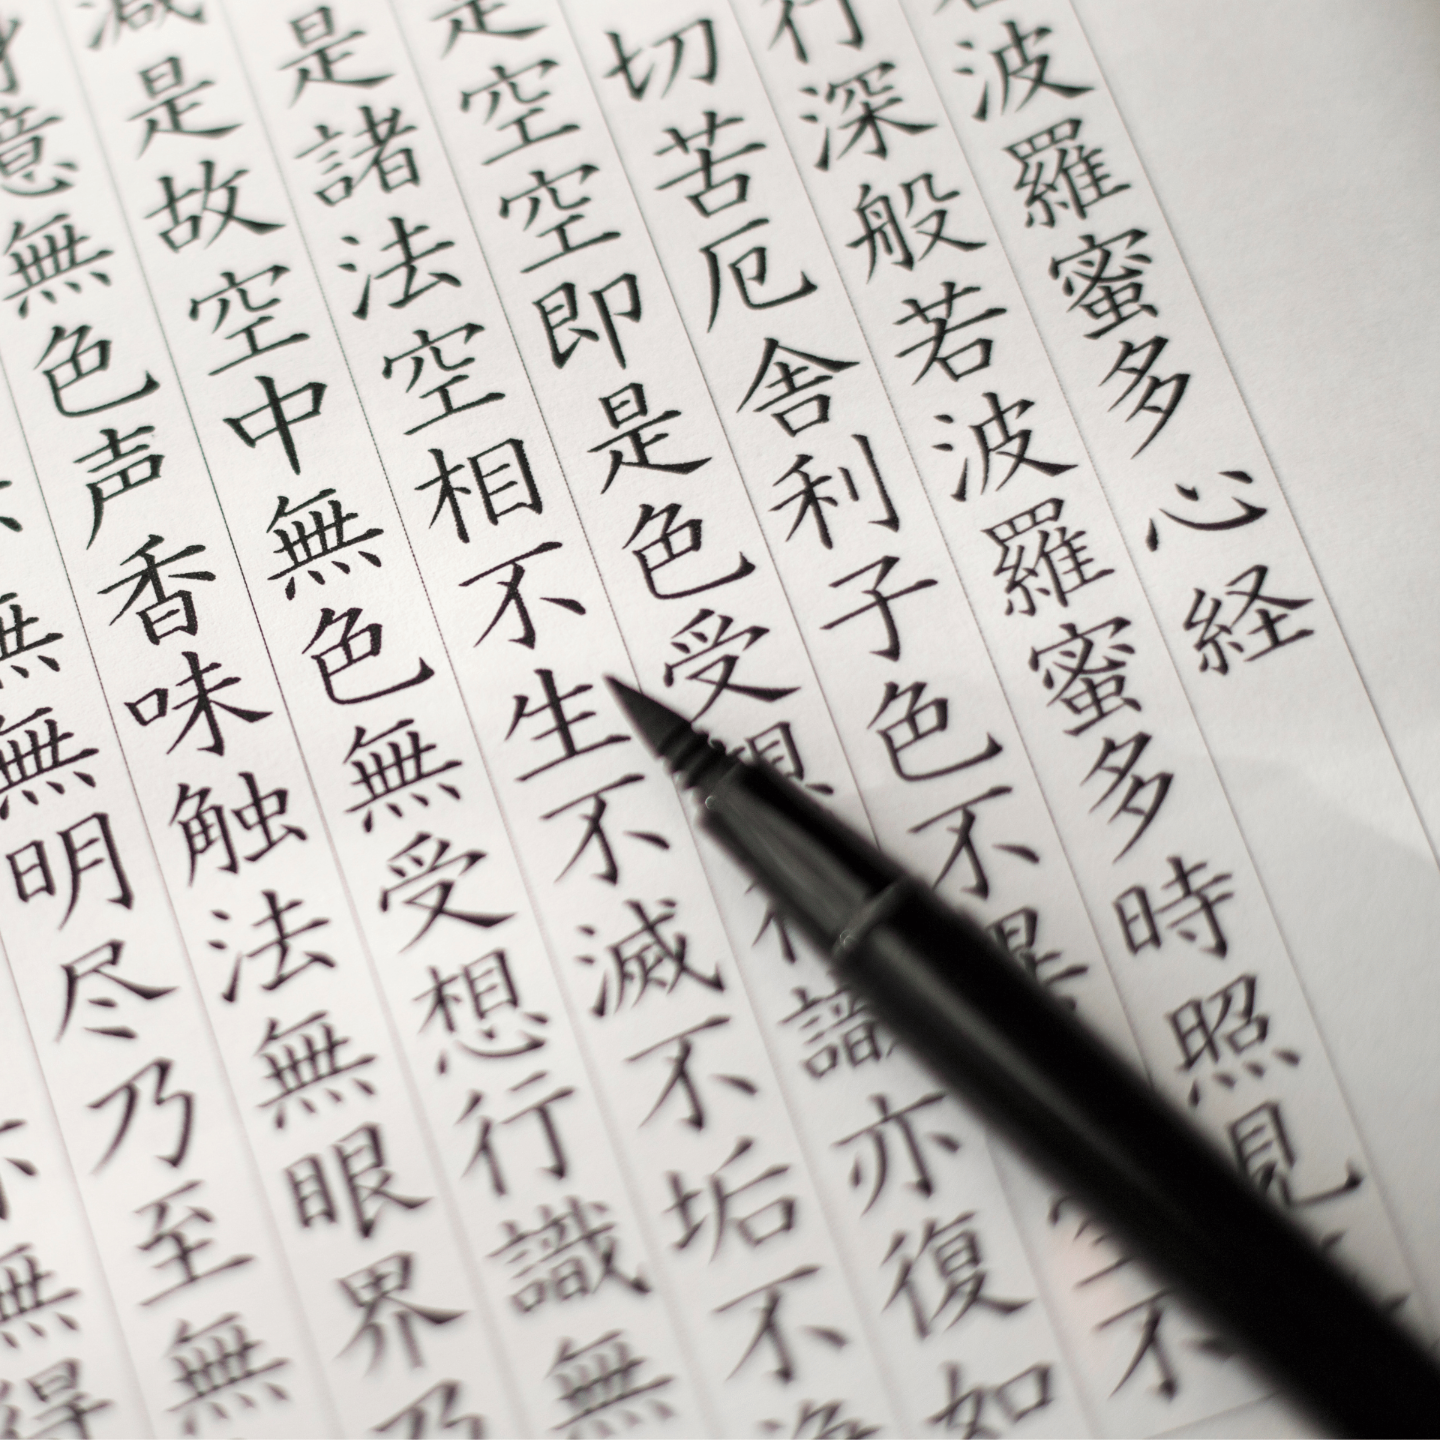 波羅蜜多心経
行深般若波羅蜜多時照見
切苦厄舎利子色不異空不
是空空即是色受想行識亦復如
是諸法空相不生不滅不垢不浄
滅是故空中無色無受想行識無
身意無色声香味触法無眼界乃
無無明尽乃至無
無得